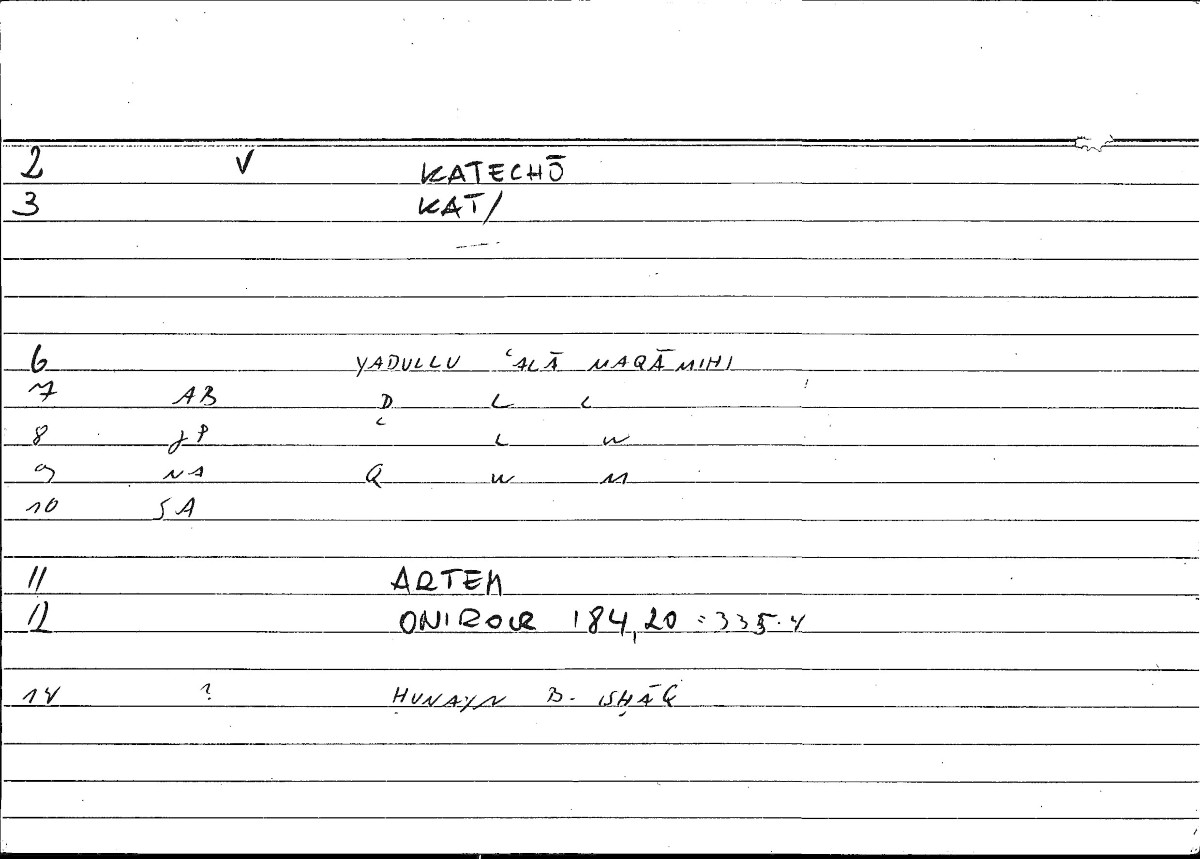 2 V KATECHŌ
3 KAT/
6 YADULLU ʿALĀ MAQĀMIHI
7 AB D L L
8 JP ʿ L W
9 NA Q W M
10 SA
11 ARTEM
12 ONIROCR 184,20 = 335.4
14 ? ḤUNAYN B. ISḤĀQ